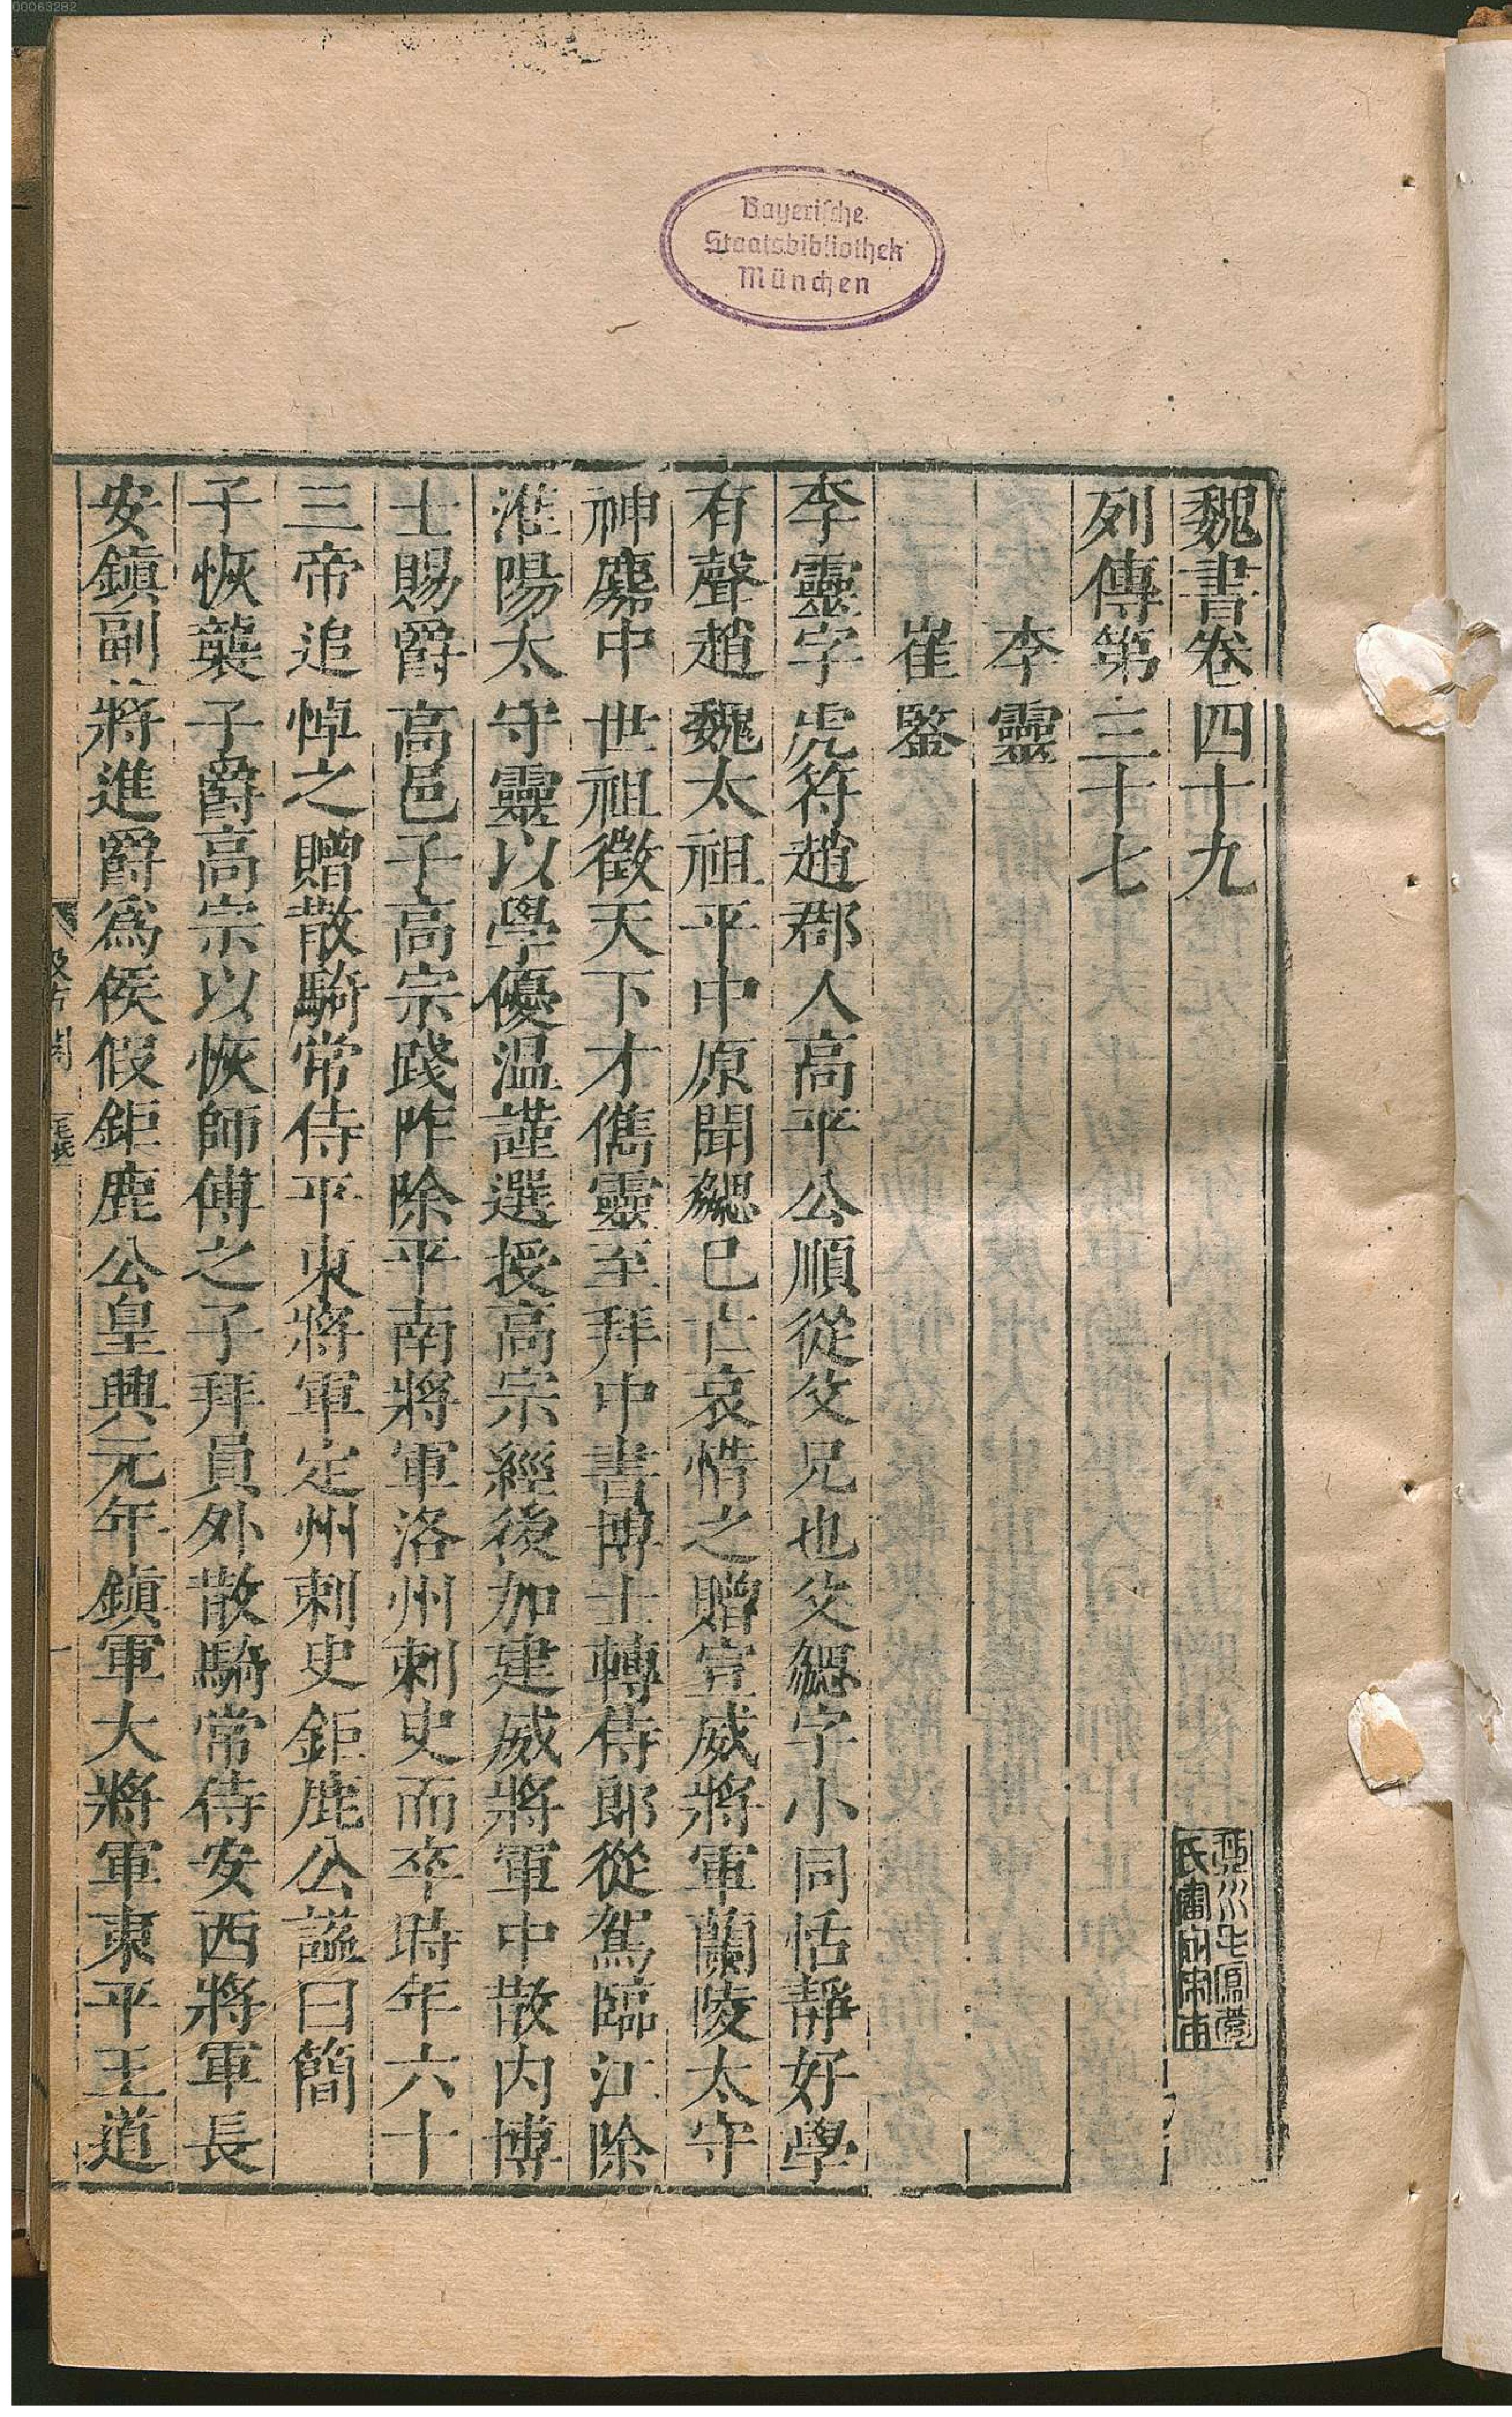 00063282
Bayerische
Staatsbibliothek
München
魏書卷四十九
列傳第三十七
李靈
崔鑒
李靈字虎符趙郡人高平公順從父兄也父勰字小同恬靜好學
有聲趙魏太祖平中原聞勰已亡哀惜之贈宣威將軍蘭陵太守
神䴥中世祖徵天下才儁靈至拜中書博士轉侍郎從駕臨江除
淮陽太守靈以學優温謹選授高宗經後加建威將軍中散内博
士賜爵高邑子高宗踐阼除平南將軍洛州刺史而卒時年六十
三帝追悼之贈散騎常侍平東將軍定州刺史鉅鹿公謚曰簡
子恢襲子爵高宗以恢師傅之子拜員外散騎常侍安西將軍長
安鎮副將進爵爲侯假鉅鹿公皇興元年鎮軍大將軍東平王道
一